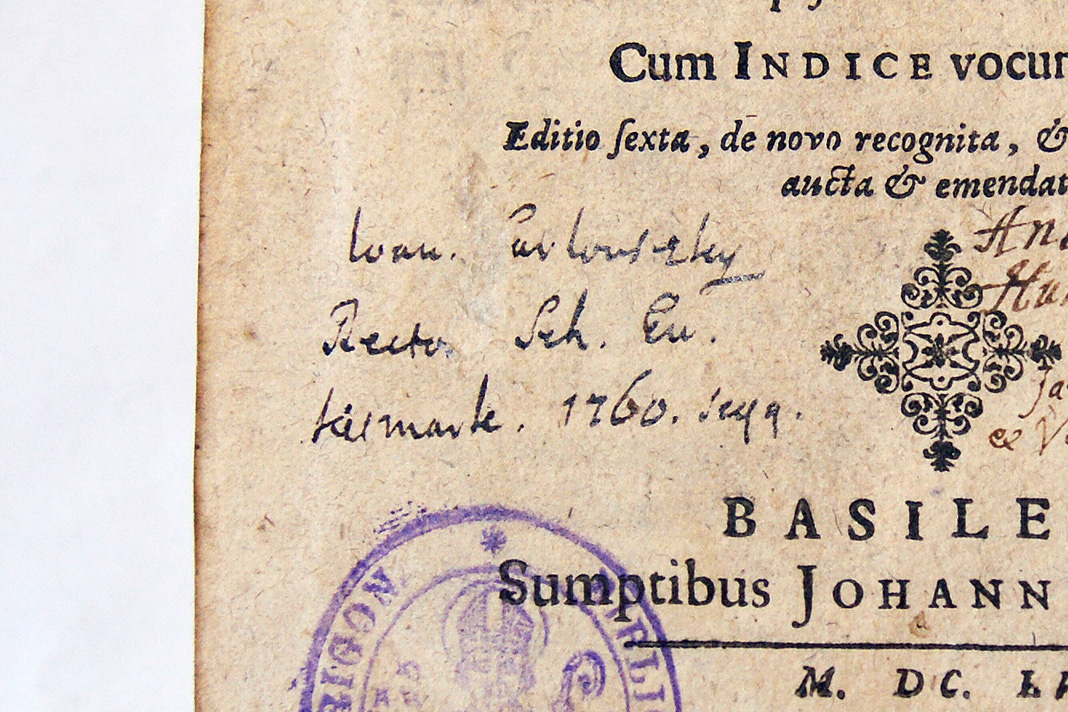 Cum INDICE vocum
Editio ſexta, de novo recognita, &
aucta & emendat
Ioan. Pavlovszky
Rector Sch. Ev.
Kesmark. 1760. seqq.
BASILE
Sumptibus JOHANN
M. DC.